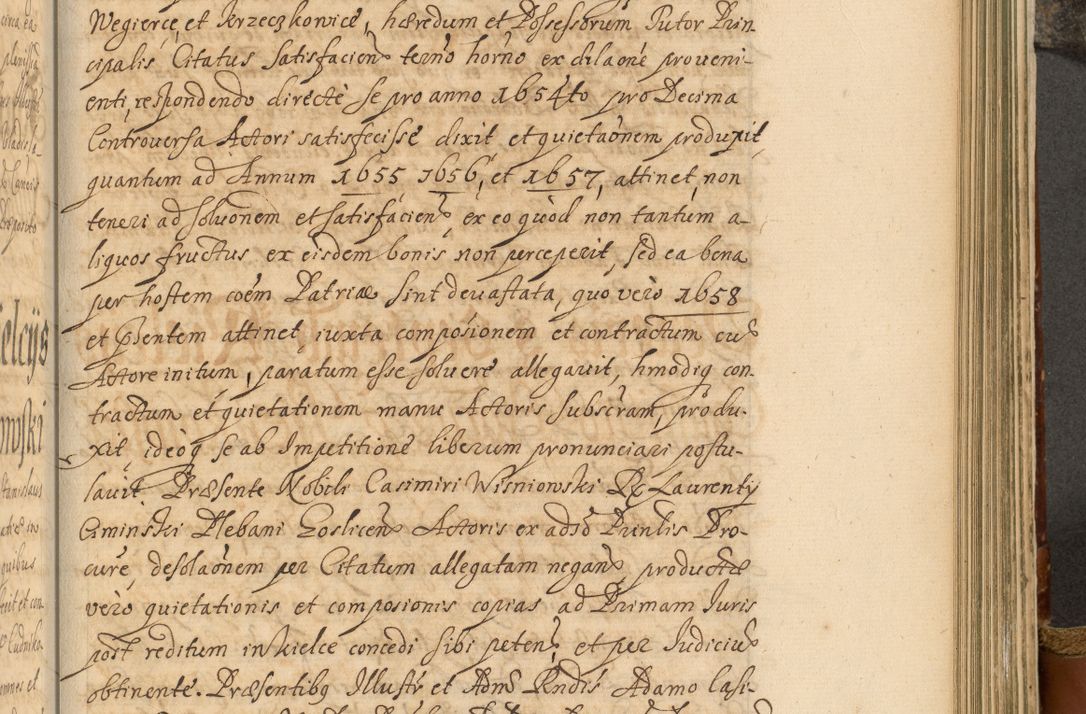 Wegierce, et Jerzeczkowice, hæredum et Possessorum Tutor Prin-
cipalis Citatus satisfacien terno horno ex dilaone proveni-
enti, respondendo directe se pro anno 1654to pro Decima
Controversa Actori satisfecisse dixit et quietaonem produxit
quantum ad Annum 1655 1656, et 1657, attinet, non
teneri ad solvonem et satisfacien ex eo quod non tantum a-
liquos fructus ex eisdem bonis non perceperit, sed ea bona
per hostem coem Patriæ sint devastata, quo vero 1658
et pntem attinet iuxta composionem et contractum cu
Actore initum, paratum esse solvere allegavit, hmodiq con-
tractum et quietationem manu Actoris subscram, produ-
xit ideoq se ab Impetitione liberum pronunciari postu-
lavit Præsente Nobili Casimiri Wisniowski Rx Laurenty
Ciminski Plebani Goslicen Actoris ex adso Punlis Pro-
cure, desolaonem per Citatum allegatam negan, productæ
vero quietationis et composionis copias ad Primam Iuris
post reditum in Kielce concedi sibi peten, et per Iudiciu
obtinente. Præsentibq Illustr et Adm Rndis Adamo Casi-